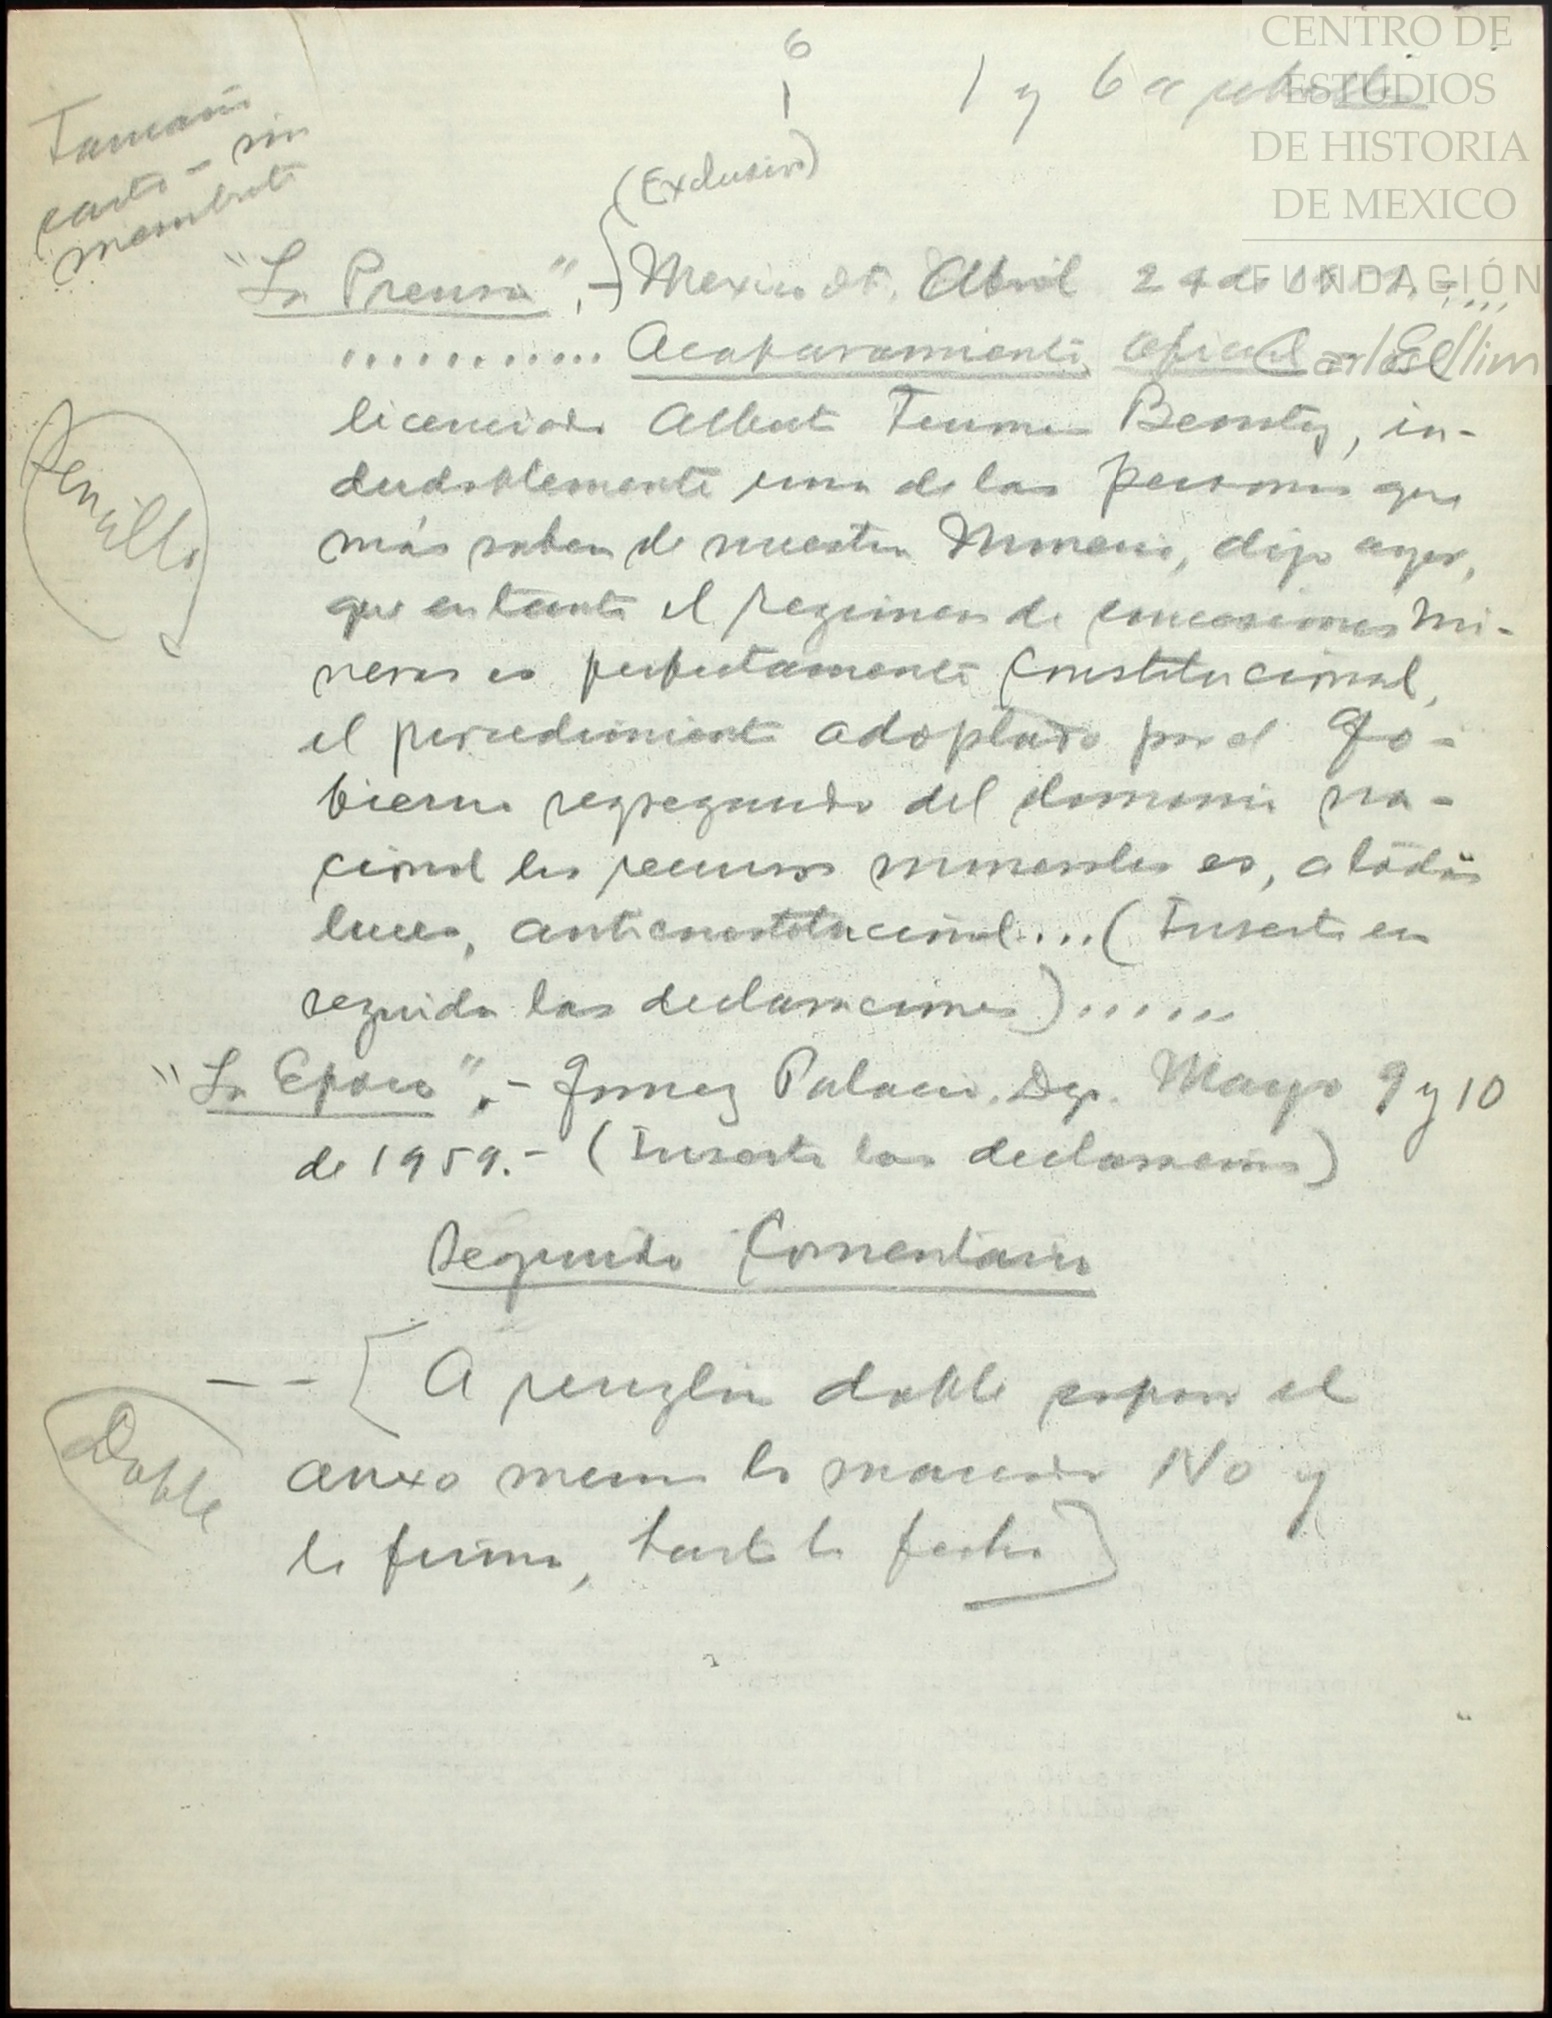 6
1
1 y 6 a
CENTRO DE
ESTUDIOS
DE HISTORIA
DE MEXICO
FUNDACIÓN
Carlos Slim
Tamaño
carta - sin
membrete
(Exclusivo)
"La Prensa", - Mexico df. Abril 24 de
............ Acaparamiento oficial - El
licenciado Alberto Terrones Benitez, in-
dudablemente una de las personas que
más saben de nuestra Mineria, dijo ayer,
que en tanto el regimen de concesiones mi-
neras es perfectamente constitucional,
el procedimiento adoptado por el Go-
bierno segregando del dominio na-
cional los recursos minerales es, a todas
luces, anticonstitucional .... (Inserte en
seguida las declaraciones) ......
Sencillo
"La Epoca", - Gomez Palacio, Dgo. Mayo 9 y 10
de 1959. - (Inserte las declaraciones)
Segundo Comentario
- - [A renglón doble copiar el
anexo menos lo marcado No y
la firma, hasta la fecha]
Doble